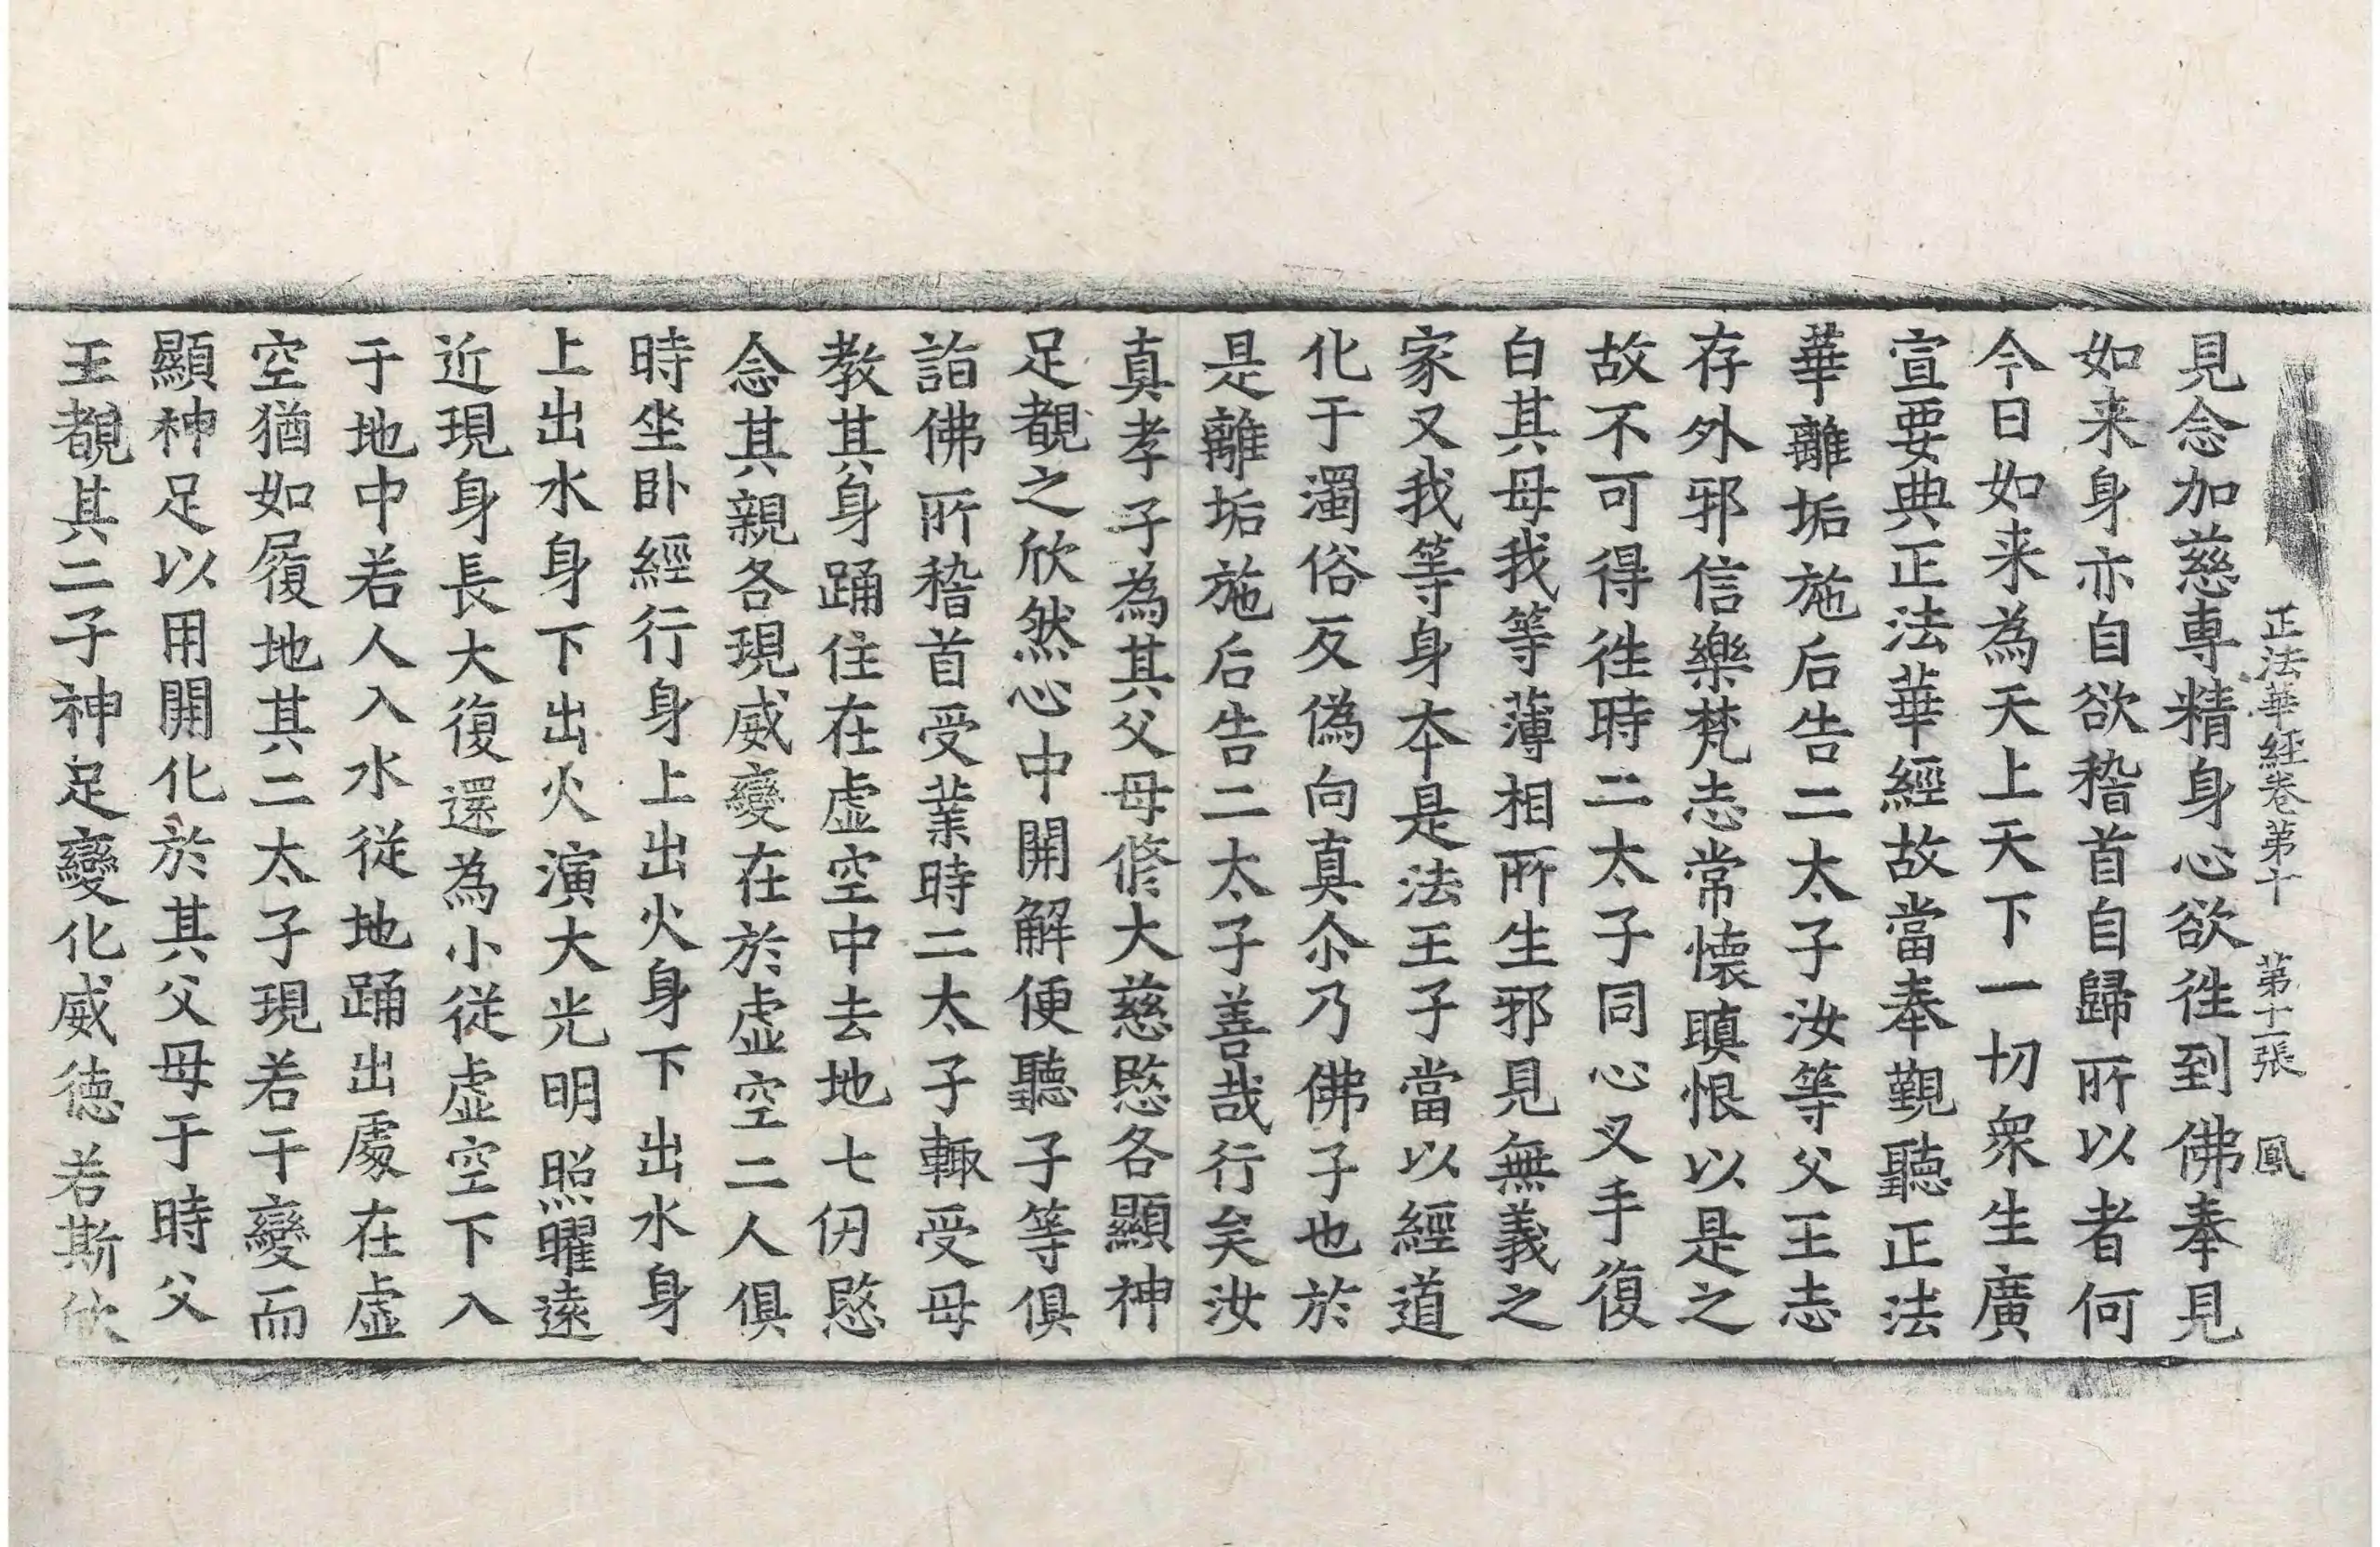 正法華經卷第十 第十一張 鳳
見念加慈專精身心欲徃到佛奉見
如来身亦自欲稽首自歸所以者何
今日如来為天上天下一切衆生廣
宣要典正法華經故當奉覲聽正法
華離垢施后告二太子汝等父王志
存外邪信樂梵志常懷瞋恨以是之
故不可得徃時二太子同心叉手復
白其母我等薄相所生邪見無義之
家又我等身夲是法王子當以經道
化于濁俗反偽向真尒乃佛子也於
是離垢施后告二太子善哉行矣汝
真孝子為其父母脩大慈愍各顯神
足覩之欣然心中開解便聽子等俱
詣佛所稽首受業時二太子輙受母
教其身踊住在虛空中去地七仞愍
念其親各現威變在於虛空二人俱
時坐卧經行身上出火身下出水身
上出水身下出火演大光明照曜遠
近現身長大復還為小従虛空下入
于地中若人入水従地踊出處在虛
空猶如履地其二太子現若干變而
顯神足以用開化於其父母于時父
王覩其二子神足變化威德若斯欣